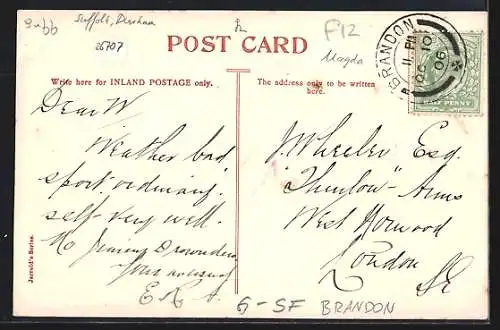 Suffolk,
26707
F12
Magda
POST CARD
BRANDON
11 PM
OC 10
06
HALF PENNY
Write here for INLAND POSTAGE only.
The address only to be written
here.
Dear W
Weather bad
sport ordinary.
self very well.
No
Yours
J Wheeler Esq.
"Thurlow" Arms
West Norwood
London
SE
Jarrold's Series.
G-SF BRANDON